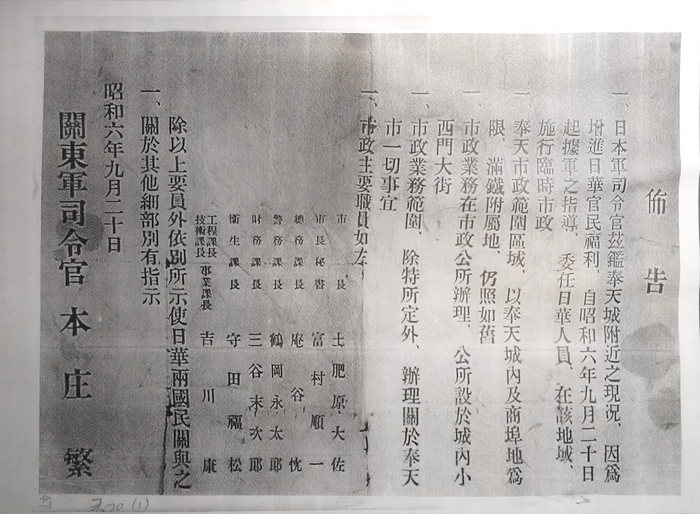 佈告
一、日本軍司令官茲鑑奉天城附近之現況、因爲
增進日華官民福利、自昭和六年九月二十日
起據軍之指導、委任日華人員、在該地域、
施行臨時市政
一、奉天市政範圍區域、以奉天城內及商埠地爲
限、滿鐵附屬地、仍照如舊
一、市政業務在市政公所辦理、公所設於城內小
西門大街
一、市政業務範圍、除特所定外、辦理關於奉天
市一切事宜
一、市政主要職員如左
市長 土肥原大佐
市長秘書 富村順一
總務課長 庵谷忱
警務課長 鶴岡永太郎
財務課長 三谷末次郎
衞生課長 守田福松
工程課長
技術課長 事業課長 吉川康
除以上要員外依別所示使日華兩國民關與之
一、關於其他細部別有指示
昭和六年九月二十日
關東軍司令官 本庄繁